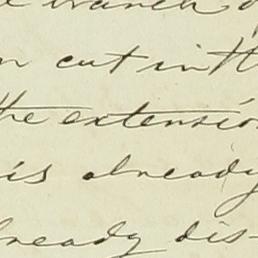 branch
cut in th
the extensio
is already
lready dis-